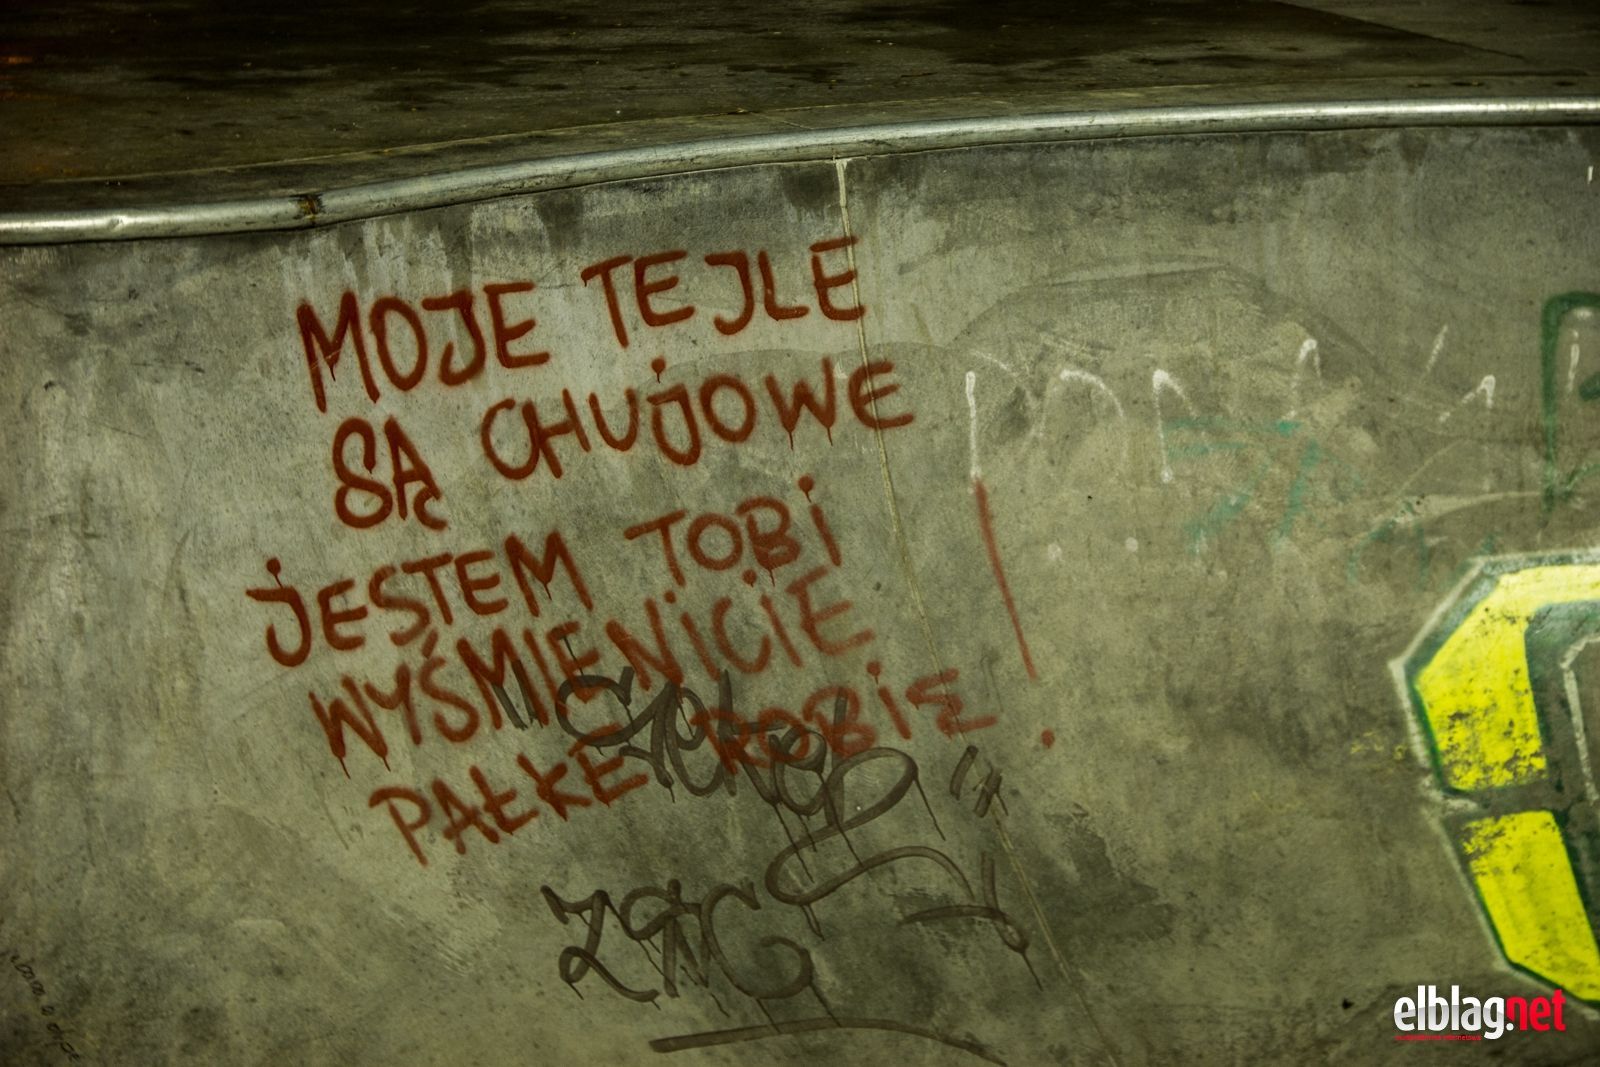 MOJE TEJLE
SĄ CHUJOWE
JESTEM TOBI
WYŚMIENICIE
PAŁKE ROBIE !
elblag.net